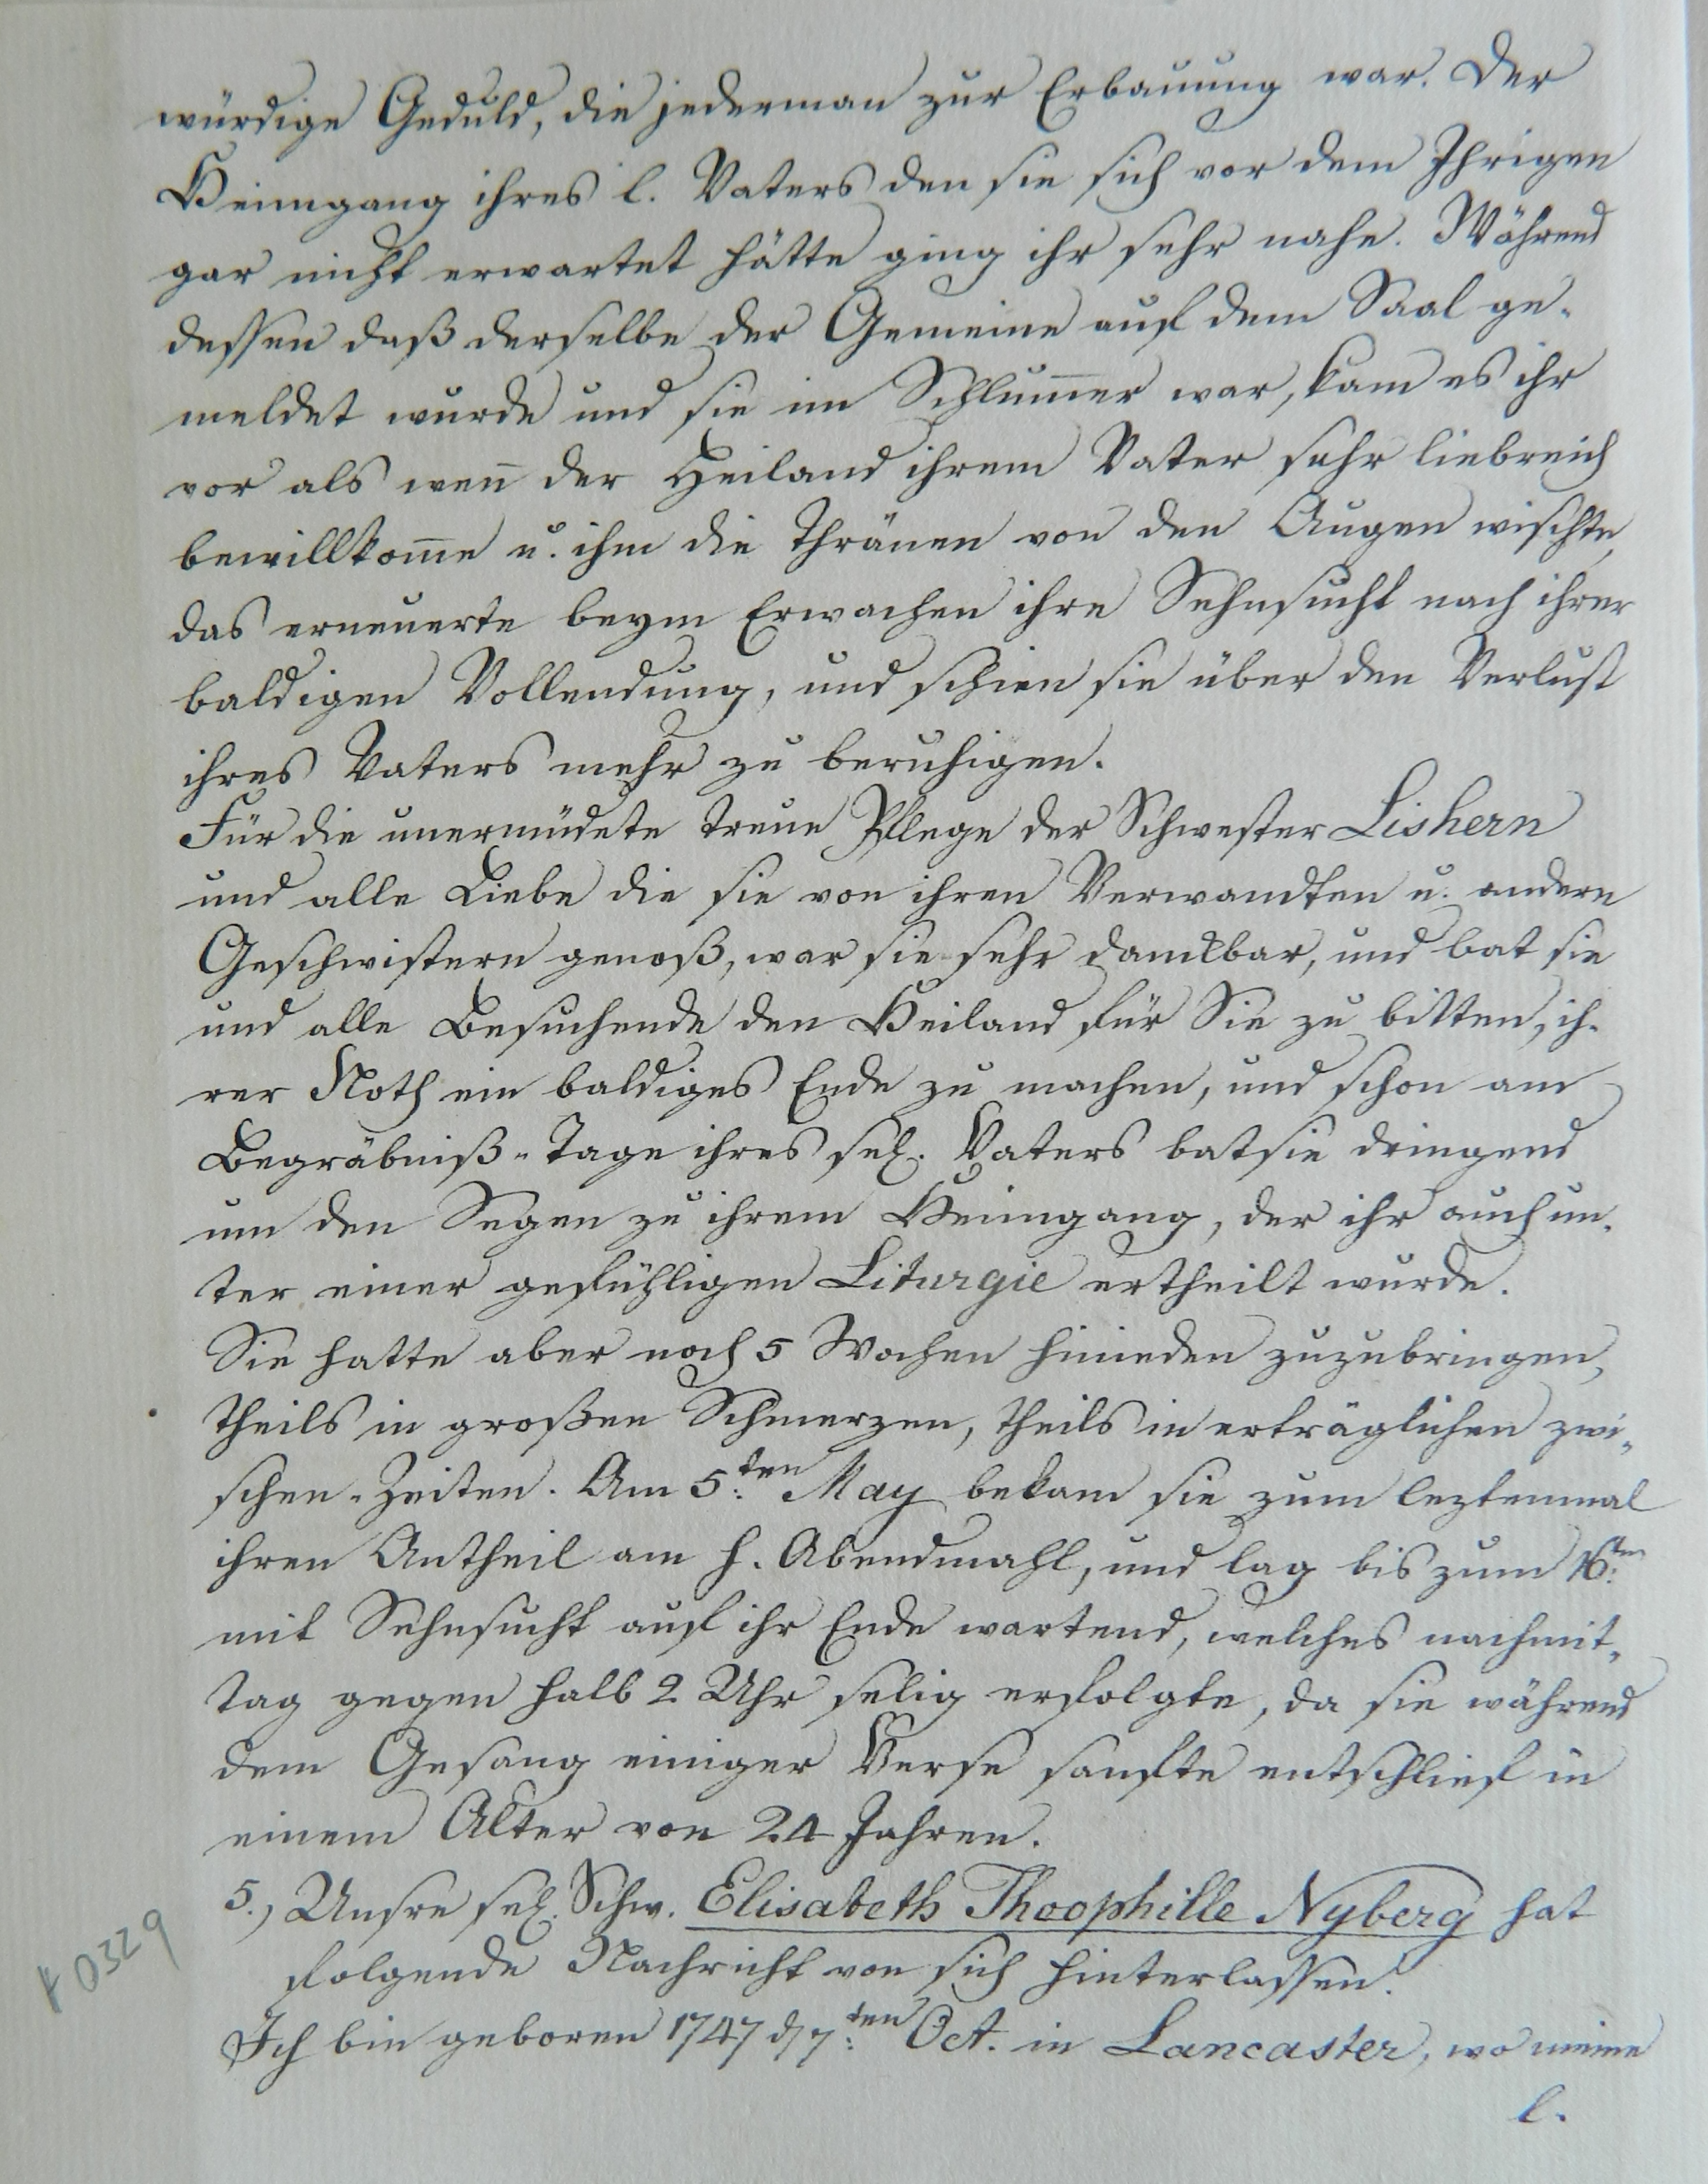 würdige Geduld, die jederman zur Erbauung war. Der
Heimgang ihres l. Vaters den sie sich vor dem Ihrigen
gar nicht erwartet hätte ging ihr sehr nahe. Während
dessen daß derselbe der Gemeine auf dem Saal ge-
meldet wurde und sie im Schlum̄er war, kam es ihr
vor als wen̄ der Heiland ihrem Vater sehr liebreich
bewillkom̄e u. ihm die Thränen von den Augen wischte,
das erneuerte beym Erwachen ihre Sehnsucht nach ihrer
baldigen Vollendung, und schien sie über den Verlust
ihres Vaters mehr zu beruhigen.
Für die unermüdete treue Pflege der Schwester Lishern
und alle Liebe die sie von ihren Verwandten u. andern
Geschwistern genoß, war sie sehr dankbar, und bat sie
und alle Besuchende den Heiland für Sie zu bitten, ih-
rer Noth ein baldiges Ende zu machen, und schon am
Begräbniß-Tage ihres sel. Vaters bat sie dringend
um den Segen zu ihrem Heimgang, der ihr auch un-
ter einer gefühligen Liturgie ertheilt wurde.
Sie hatte aber noch 5 Wochen hinieden zuzubringen,
theils in großen Schmerzen, theils in erträglichen zwi-
schen-Zeiten. Am 5.ten May bekam sie zum leztenmal
ihren Antheil am h. Abendmahl, und lag bis zum 16.ten
mit Sehnsucht auf ihr Ende wartend, welches nachmit-
tag gegen halb 2 Uhr selig erfolgte, da sie während
dem Gesang einiger Verse sanfte entschlief in
einem Alter von 24 Jahren.
5.) Unsre sel. Schw. Elisabeth Theophille Nyberg hat
folgende Nachricht von sich hinterlassen.
Ich bin geboren 1747 d 7.ten Oct. in Lancaster, wo meine
l.
0329